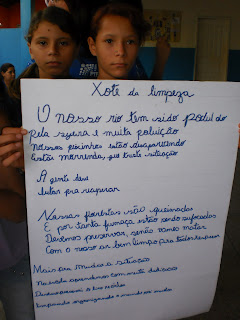 Xote da limpeza
O nosso rio tem sido poluído
pela sujeira e muita poluição
Nossos peixinhos estão desaparecendo
Estão morrendo, que triste situação
A gente tem
lutar pra recuperar
Nossas florestas são queimadas
E por tanta fumaça estão sendo sufocadas
Devemos preservar, senão vamos matar
Com o nosso ar bem limpo para todos
Mais pra mudar a situação
Na escola aprendemos com muita dedicação